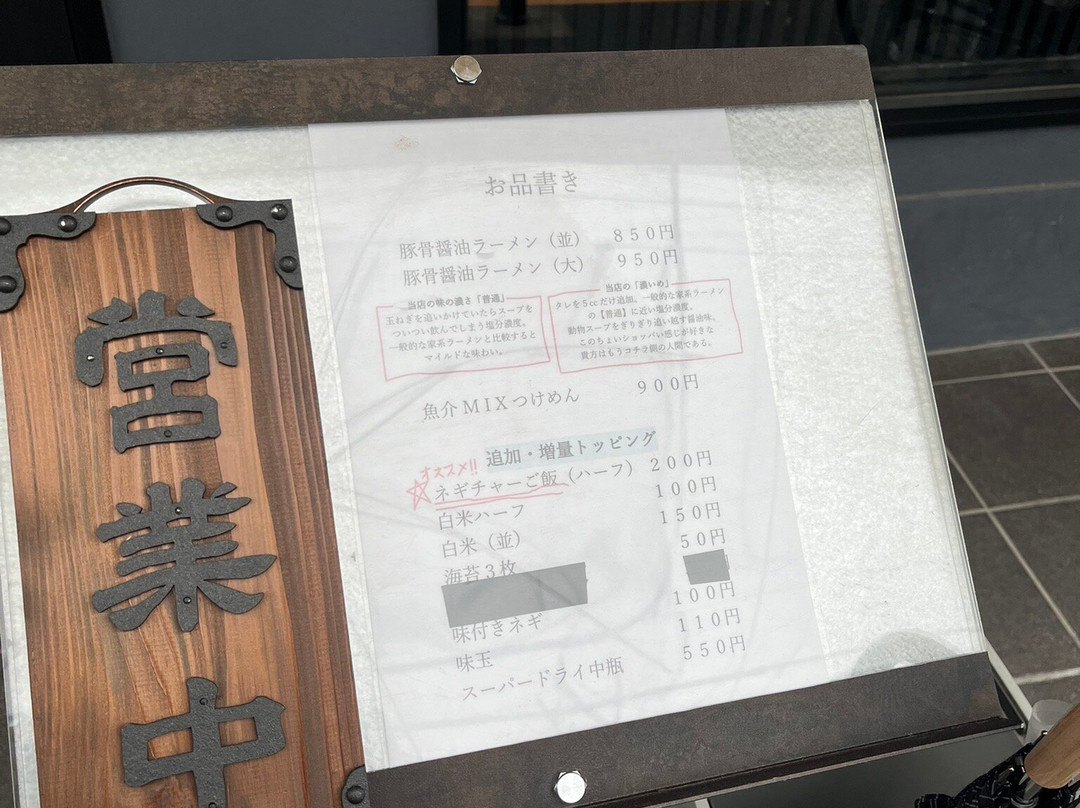 営業中
お品書き
豚骨醤油ラーメン（並） ８５０円
豚骨醤油ラーメン（大） ９５０円
当店の味の濃さ「普通」
玉ねぎを追いかけていたらスープを
ついつい飲んでしまう塩分濃度。
一般的な家系ラーメンと比較すると
マイルドな味わい。
当店の「濃いめ」
タレを５ccだけ追加。一般的な家系ラーメン
の【普通】に近い塩分濃度。
動物スープをぎりぎり追い越す醤油味。
このちょいショッパい感じが好きな
貴方はもうコチラ側の人間である。
魚介ＭＩＸつけめん ９００円
追加・増量トッピング
オススメ!!
ネギチャーご飯（ハーフ） ２００円
白米ハーフ １００円
白米（並） １５０円
海苔３枚 ５０円
味付きネギ １００円
味玉 １１０円
スーパードライ中瓶 ５５０円